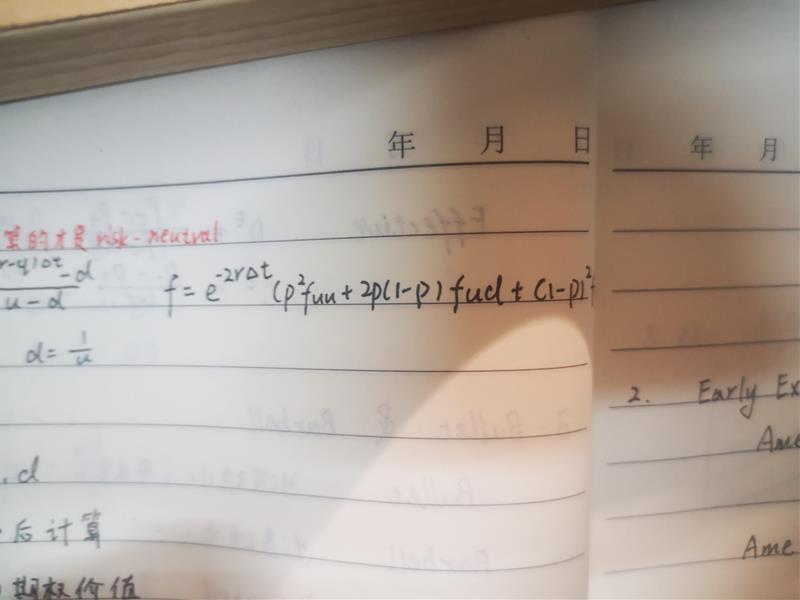 年 月 日
算的才是 risk-neutral
r-q)Δt -d
u-d
f = e^-2rΔt (p²fuu + 2p(1-p) fud + (1-p)²f
d = 1/u
, d
后计算
期权价值
年 月
2. Early Ex
Ame
Ame